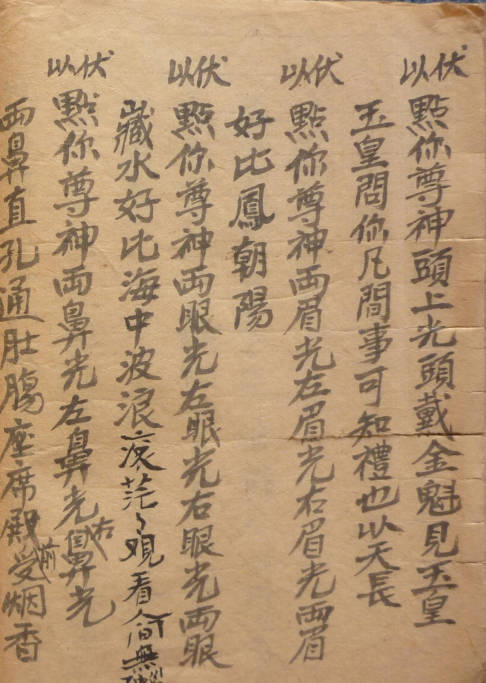 以伏
點你尊神頭上光頭戴金魁見玉皇
玉皇問你凡間事可知禮也以天長
以伏
點你尊神両眉光左眉光右眉光両眉
好比鳳朝陽
以伏
點你尊神両眼光左眼光右眼光両眼
藏水好比海中波浪滾茫々觀看人間無
以伏
點你尊神両鼻光左鼻光右鼻光
両鼻直孔通肚腸座席殿前受烟香